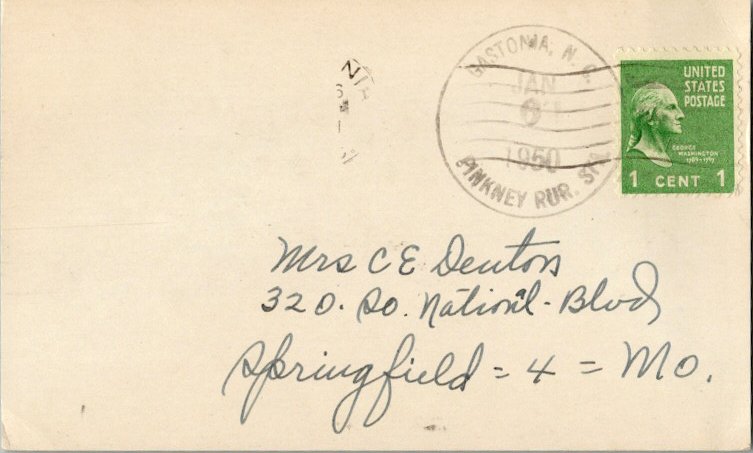 GASTONIA, N. C.
JAN
6
1950
PINKNEY RUR. STA.
UNITED
STATES
POSTAGE
GEORGE
WASHINGTON
1789-1797
1 CENT 1
Mrs C E Denton
320. So. Nation'l - Blvd
Springfield = 4 = Mo.